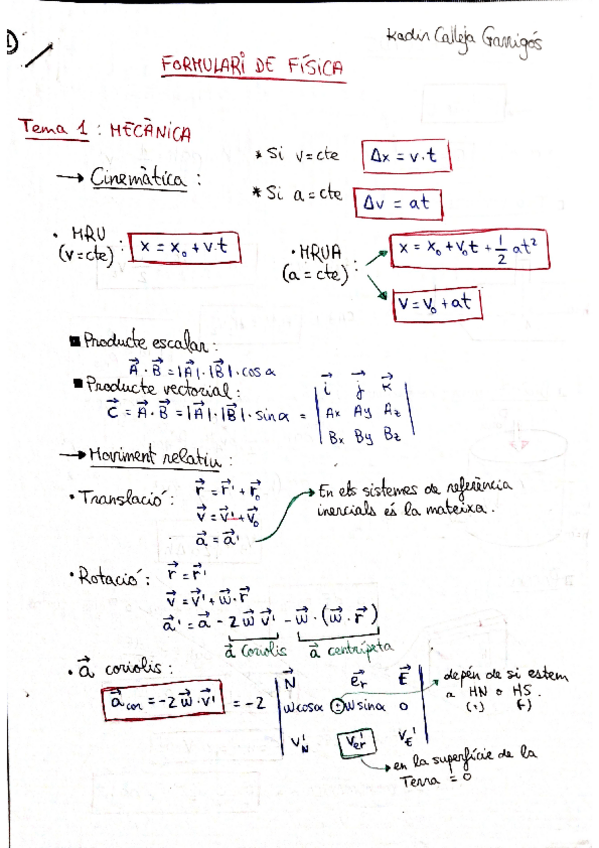 1
Kadin Calleja Garrigós
FORMULARI DE FÍSICA
Tema 1 : MECÀNICA
→ Cinemàtica :
* Si v=cte Δx = v·t
* Si a=cte Δv = at
• MRU (v=cte) : x = x₀ + v·t
• MRUA (a=cte) :
x = x₀ + v₀t + 1/2 at²
v = v₀ + at
■ Producte escalar :
A⃗ · B⃗ = |A⃗| · |B⃗| · cos α
■ Producte vectorial :
C⃗ = A⃗ · B⃗ = |A⃗| · |B⃗| · sin α = | i⃗ j⃗ k⃗ |
| Ax Ay Az |
| Bx By Bz |
→ Moviment relatiu :
• Translació : r⃗ = r⃗' + r⃗₀
v⃗ = v⃗' + v⃗₀
a⃗ = a⃗'
→ En els sistemes de referència
inercials és la mateixa.
• Rotació : r⃗ = r⃗'
v⃗ = v⃗' + w⃗ · r⃗
a⃗' = a⃗ - 2 w⃗ v⃗' - w⃗ · (w⃗ · r⃗)
a⃗ Coriolis a⃗ centrípeta
• a⃗ coriolis :
a⃗ cor = -2 w⃗ · v⃗' = -2 | N⃗ e⃗r E⃗ |
| w cosα ± w sinα 0 |
| v'N v'er v'E |
depén de si estem
a HN o HS.
(+) (-)
→ en la superfície de la
Terra = 0